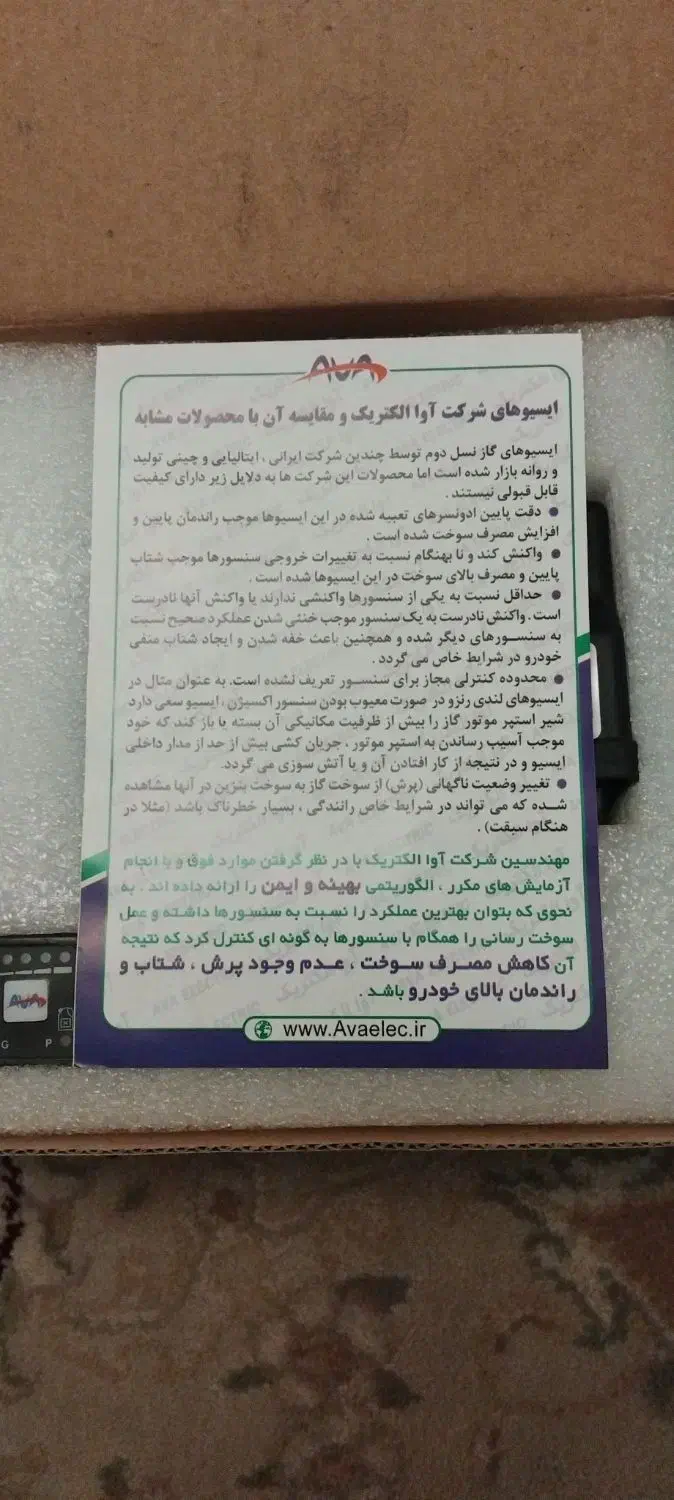 AVA
ایسیوهای شرکت آوا الکتریک و مقایسه آن با محصولات مشابه
ایسیوهای گاز نسل دوم توسط چندین شرکت ایرانی ، ایتالیایی و چینی تولید
و روانه بازار شده است اما محصولات این شرکت ها به دلایل زیر دارای کیفیت
قابل قبولی نیستند .
● دقت پایین ادونسرهای تعبیه شده در این ایسیوها موجب راندمان پایین و
افزایش مصرف سوخت شده است .
● واکنش کند و نا بهنگام نسبت به تغییرات خروجی سنسورها موجب شتاب
پایین و مصرف بالای سوخت در این ایسیوها شده است .
● حداقل نسبت به یکی از سنسورها واکنشی ندارند یا واکنش آنها نادرست
است . واکنش نادرست به یک سنسور موجب خنثی شدن عملکرد صحیح نسبت
به سنسورهای دیگر شده و همچنین باعث خفه شدن و ایجاد شتاب منفی
خودرو در شرایط خاص می گردد .
● محدوده کنترلی مجاز برای سنسور تعریف نشده است. به عنوان مثال در
ایسیوهای لندی رنزو در صورت معیوب بودن سنسور اکسیژن ، ایسیو سعی دارد
شیر استپر موتور گاز را بیش از ظرفیت مکانیکی آن بسته یا باز کند که خود
موجب آسیب رساندن به استپر موتور ، جریان کشی بیش از حد از مدار داخلی
ایسیو و در نتیجه از کار افتادن آن و یا آتش سوزی می گردد.
● تغییر وضعیت ناگهانی (پرش) از سوخت گاز به سوخت بنزین در آنها مشاهده
شده که می تواند در شرایط خاص رانندگی ، بسیار خطرناک باشد (مثلا در
هنگام سبقت) .
مهندسین شرکت آوا الکتریک با در نظر گرفتن موارد فوق و با انجام
آزمایش های مکرر ، الگوریتمی بهینه و ایمن را ارائه داده اند . به
نحوی که بتوان بهترین عملکرد را نسبت به سنسورها داشته و عمل
سوخت رسانی را همگام با سنسورها به گونه ای کنترل کرد که نتیجه
آن کاهش مصرف سوخت ، عدم وجود پرش ، شتاب و
راندمان بالای خودرو باشد .
www.Avaelec.ir
AVA
G P